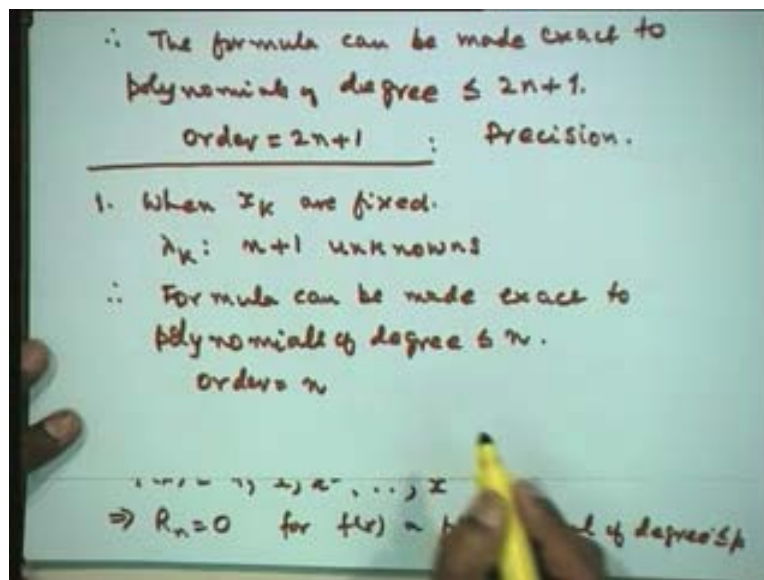 ∴ The formula can be made exact to
polynomials of degree ≤ 2n+1.
Order = 2n+1 : Precision.
1. When x_k are fixed.
λ_k : n+1 unknowns
∴ Formula can be made exact to
polynomials of degree ≤ n.
Order = n
⇒ R_n = 0 for f(x) a of degree ≤ p